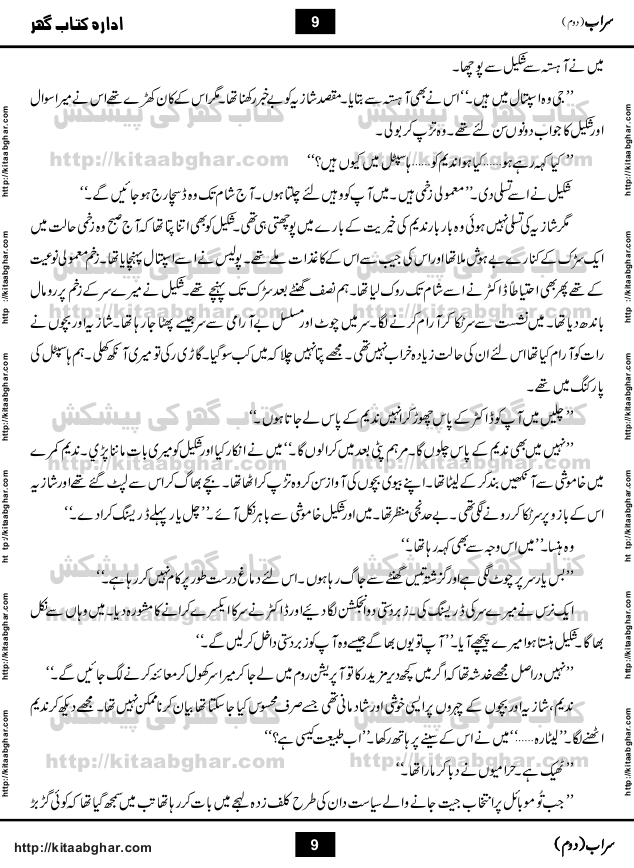 سراب (دوم)
9
ادارہ کتاب گھر
میں نے آہستہ سے شکیل سے پوچھا۔
’’جی وہ اسپتال میں ہیں۔‘‘ اس نے بھی آہستہ سے بتایا۔ مقصد شازیہ کو بے خبر رکھنا تھا۔ مگر اس کے کان کھڑے تھے اس نے میرا سوال
اور شکیل کا جواب دونوں سن لئے تھے۔ وہ تڑپ کر بولی۔
’’کیا کہہ رہے ہو......کیا ہوا ندیم کو......ہاسپٹل میں کیوں ہیں؟‘‘
شکیل نے اسے تسلی دی۔ ’’معمولی زخمی ہیں۔ میں آپ کو وہیں لئے چلتا ہوں۔ آج شام تک وہ ڈسچارج ہو جائیں گے۔‘‘
مگر شازیہ کی تسلی نہیں ہوئی وہ بار بار ندیم کی خیریت کے بارے میں پوچھتی ہی تھی۔ شکیل کو بھی اتنا پتا تھا کہ آج صبح وہ زخمی حالت میں
ایک سڑک کے کنارے بے ہوش ملا تھا اور اس کی جیب سے اس کے کاغذات ملے تھے۔ پولیس نے اسے اسپتال پہنچایا تھا۔ زخم معمولی نوعیت
کے تھے پھر بھی احتیاطاً ڈاکٹر نے اسے شام تک روک لیا تھا۔ ہم نصف گھنٹے بعد سڑک تک پہنچے تھے۔ شکیل نے میرے سر کے زخم پر رومال
باندھ دیا تھا۔ میں نشست سے سر ٹکا کر آرام کرنے لگا۔ سر میں چوٹ اور مسلسل بے آرامی سے سر جیسے پھٹا جا رہا تھا۔ شازیہ اور بچوں نے
رات کو آرام کیا تھا اس لئے ان کی حالت زیادہ خراب نہیں تھی۔ مجھے پتا نہیں چلا کہ میں کب سو گیا۔ گاڑی رکی تو میری آنکھ کھلی۔ ہم ہاسپٹل کی
پارکنگ میں تھے۔
’’چلیں میں آپ کو ڈاکٹر کے پاس چھوڑ کر انہیں ندیم کے پاس لے جاتا ہوں۔‘‘
’’نہیں میں بھی ندیم کے پاس چلوں گا۔ مرہم پٹی بعد میں کرالوں گا۔‘‘ میں نے انکار کیا اور شکیل کو میری بات ماننا پڑی۔ ندیم کمرے
میں خاموشی سے آنکھیں بند کر کے لیٹا تھا۔ اپنے بیوی بچوں کی آواز سن کر وہ تڑپ کر اٹھا تھا۔ بچے بھاگ کر اس سے لپٹ گئے تھے اور شازیہ
اس کے بازو پر سر ٹکا کر رونے لگی تھی۔ بے حد نجی منظر تھا۔ میں اور شکیل خاموشی سے باہر نکل آئے۔ ’’چل یار پہلے ڈریسنگ کرا دے۔‘‘
وہ ہنسا۔ ’’میں اس وجہ سے بھی کہہ رہا تھا۔‘‘
’’بس یار سر پر چوٹ لگی ہے اور گزشتہ تیس گھنٹے سے جاگ رہا ہوں۔ اس لئے دماغ درست طور پر کام نہیں کر رہا ہے۔‘‘
ایک نرس نے میرے سر کی ڈریسنگ کی۔ زبردستی دو انجکشن لگا دیئے اور ڈاکٹر نے سر کا ایکسرے کرانے کا مشورہ دیا۔ میں وہاں سے نکل
بھاگا۔ شکیل ہنستا ہوا میرے پیچھے آیا۔ ’’آپ تو یوں بھاگے جیسے وہ آپ کو زبردستی داخل کر لیں گے۔‘‘
’’نہیں دراصل مجھے خدشہ تھا کہ اگر میں کچھ دیر مزید رکا تو آپریشن روم میں لے جا کر میرا سر کھول کر معائنہ کرنے لگ جائیں گے۔‘‘
ندیم، شازیہ اور بچوں کے چہروں پر ایسی خوشی اور شادمانی تھی جسے صرف محسوس کیا جا سکتا تھا بیان کرنا ممکن نہیں تھا۔ مجھے دیکھ کر ندیم
اٹھنے لگا۔ ’’لیٹا رہ......‘‘ میں نے اس کے سینے پر ہاتھ رکھا۔ ’’اب طبیعت کیسی ہے؟‘‘
’’ٹھیک ہے۔ حرامیوں نے دبا کر مارا تھا۔‘‘
’’جب تُو موبائل پر انتخاب جیت جانے والے سیاست دان کی طرح کلف زدہ لہجے میں بات کر رہا تھا تب میں سمجھ گیا تھا کہ کوئی گڑبڑ
http://kitaabghar.com
9
سراب (دوم)